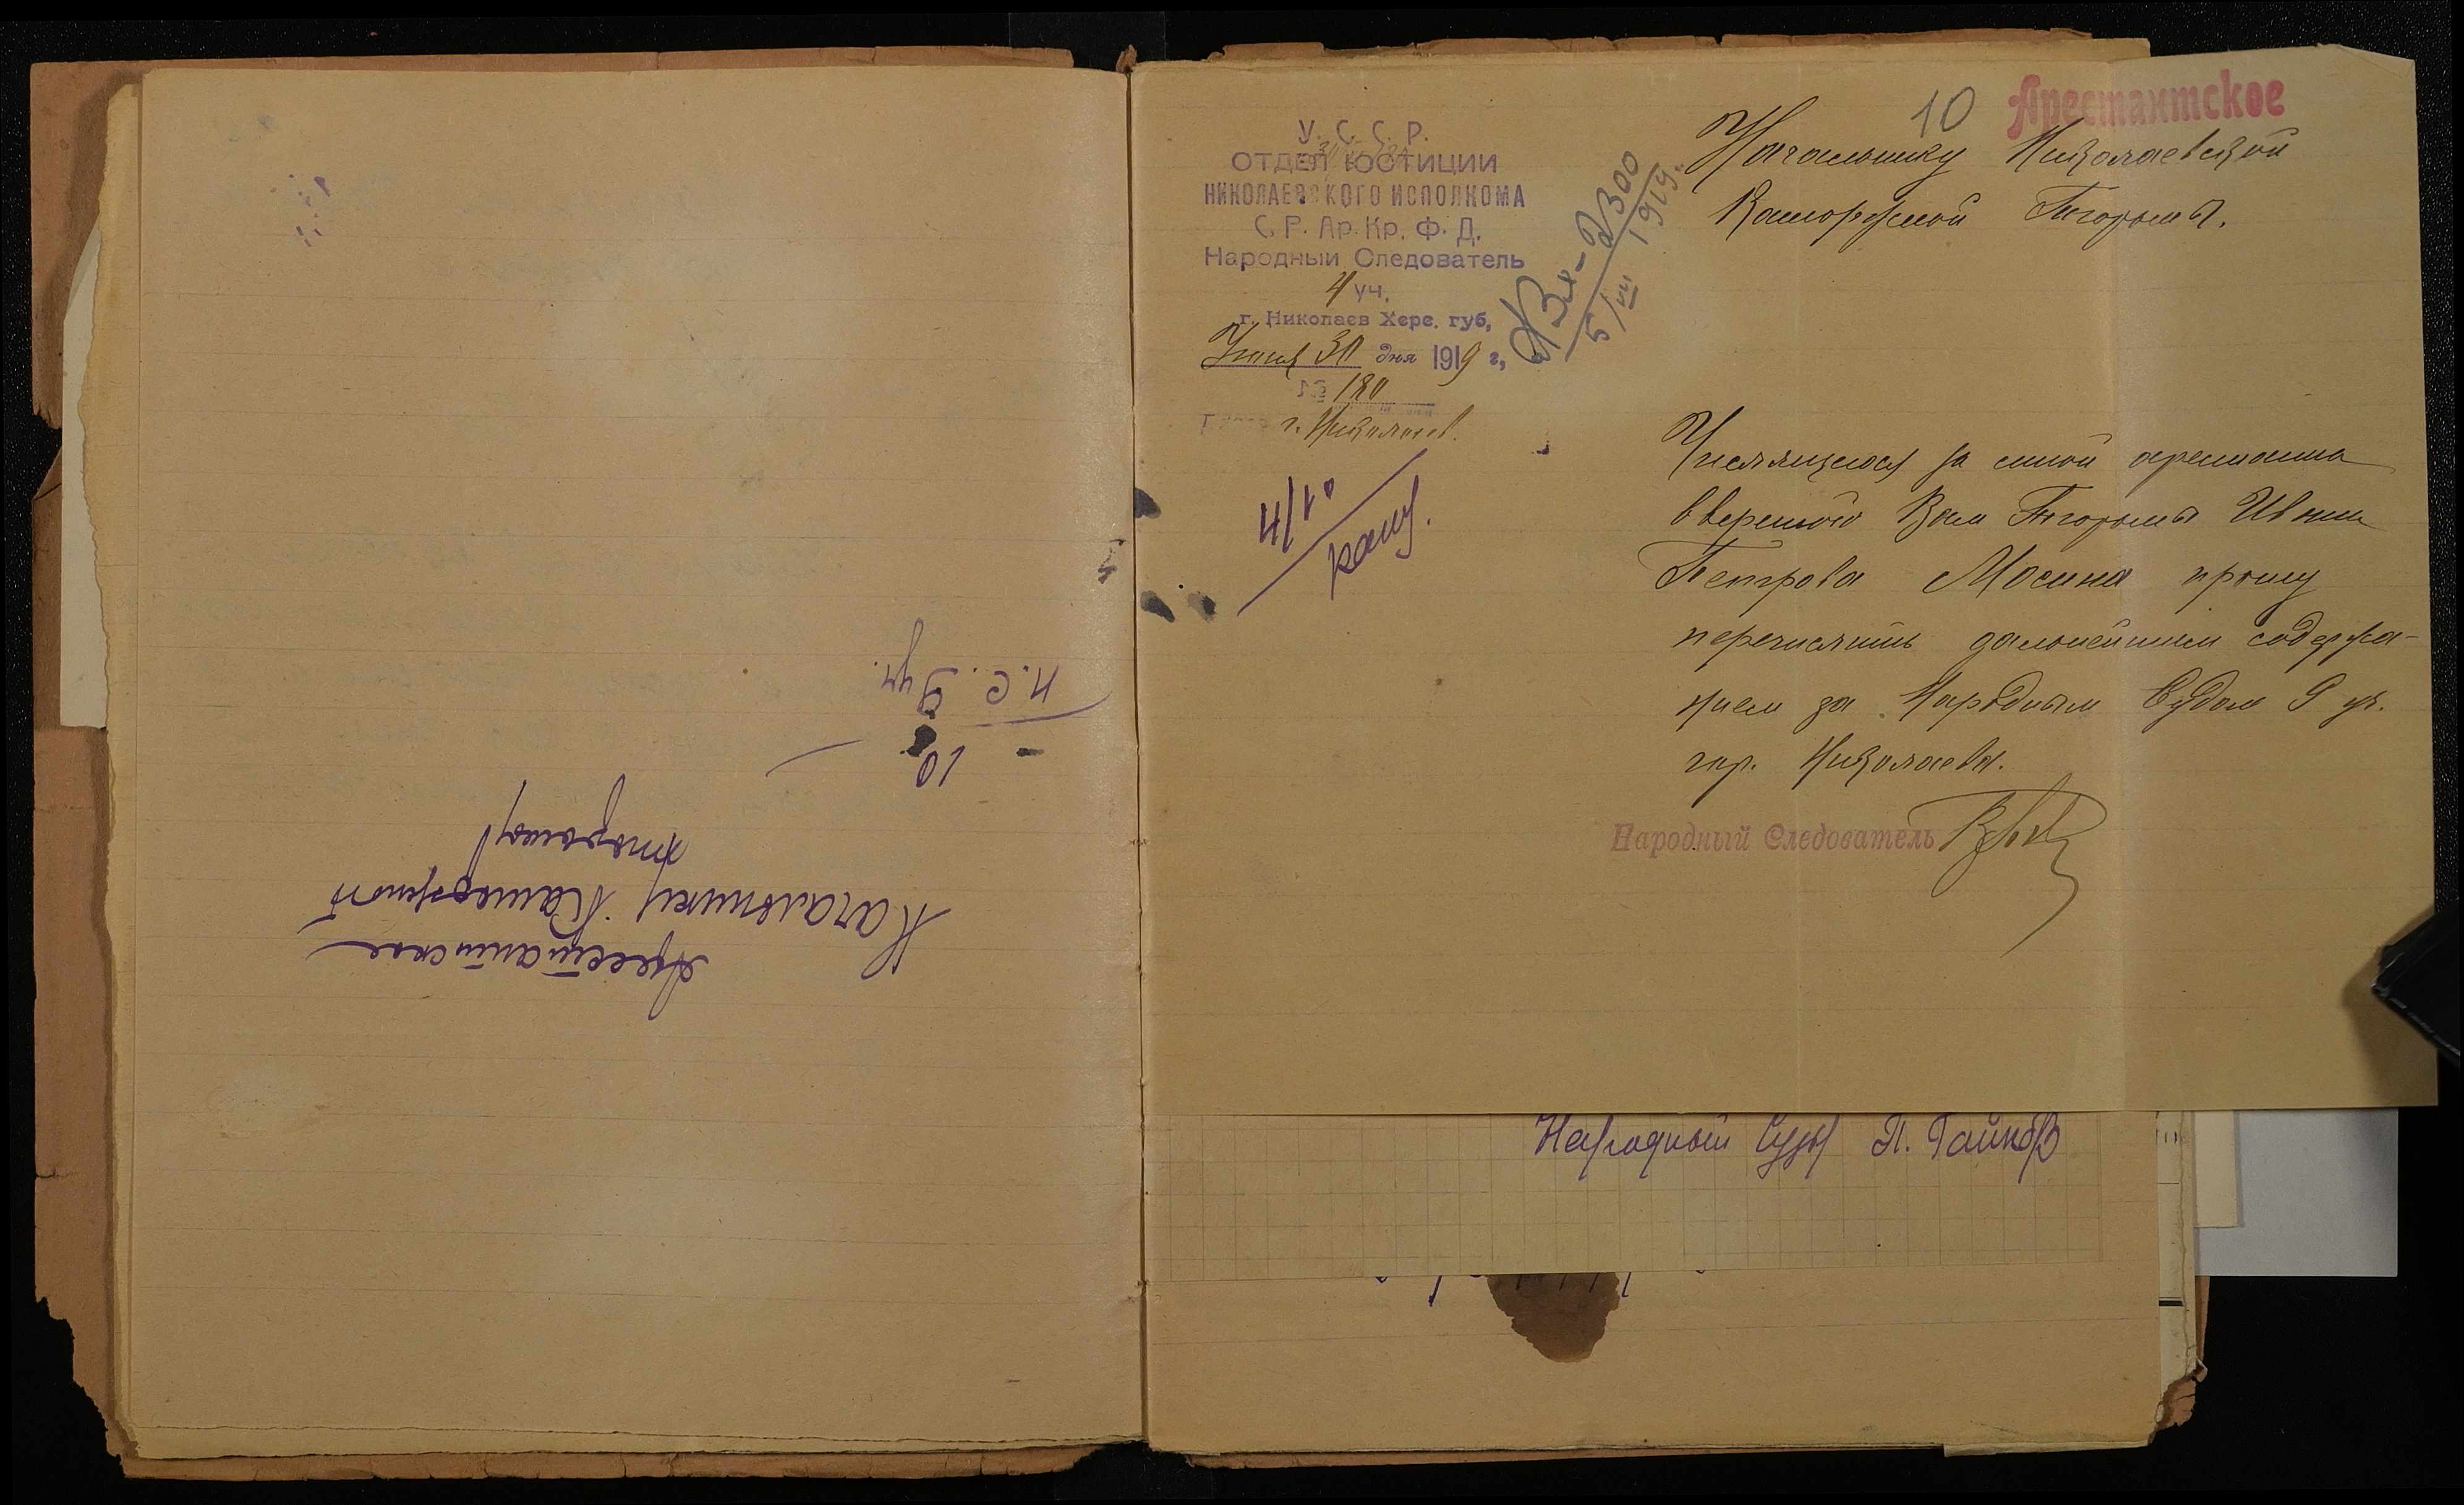 Арестантское
Начальнику Каторжной
тюрьмы
10
Н.С. 9 уч.
У. С. С. Р.
ОТДЕЛ ЮСТИЦИИ
НИКОЛАЕВСКОГО ИСПОЛКОМА
С. Р. Ар. Кр. Ф. Д.
Народный Следователь
4 уч.
г. Николаев Херс. губ,
30 дня 1919 г,
№ 180
г. Николаев.
2300
5/VII 1919.
10
Арестантское
Начальнику Николаевской
Каторжной Тюрьмы.
Числящегося за мной арестанта
вверенной Вам Тюрьмы Ивана
Петрова Мосина прошу
перечислить дальнейшим содержа-
нием за Народным Судом 9 уч.
гор. Николаева.
Народный Следователь
Народный Судья П. Гайков